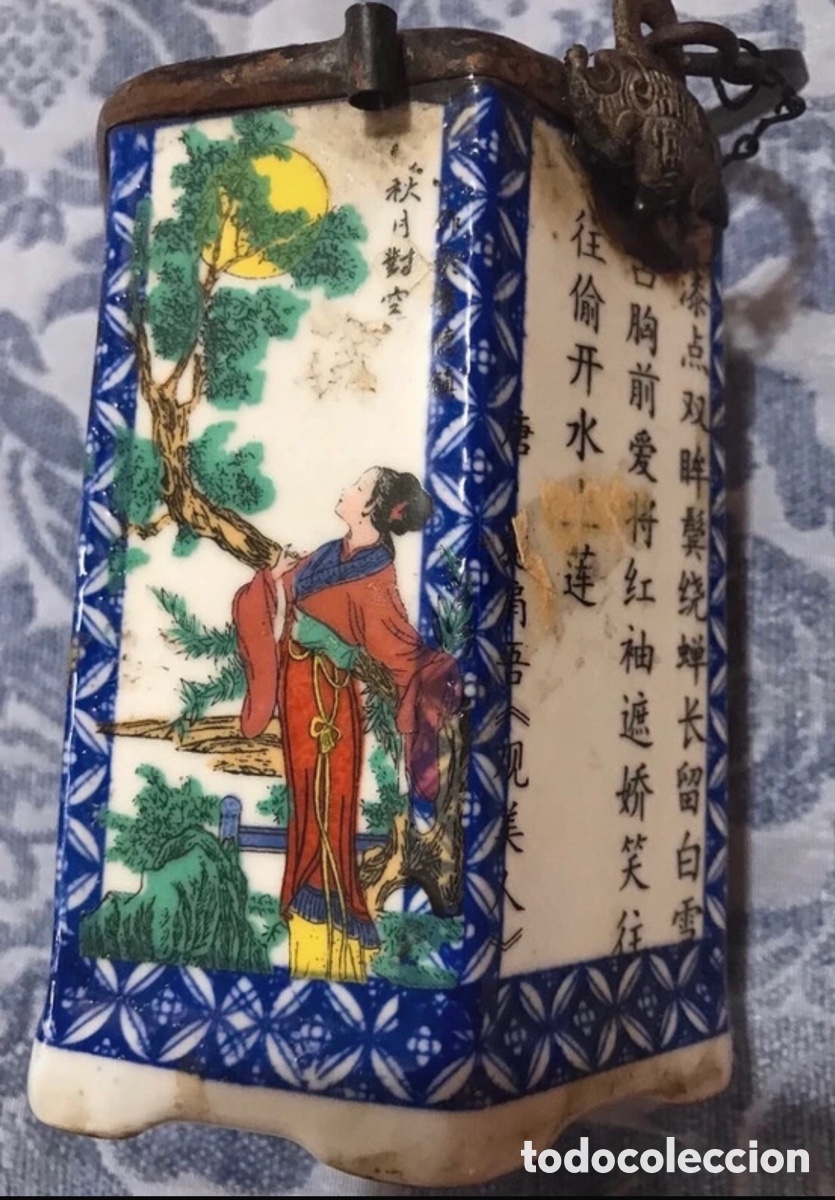 秋月對空
漆点双眸鬓绕蝉长留白雪
占胸前爱将红袖遮娇笑往
往偷开水上莲
唐 肩吾《观美人》
todocoleccion